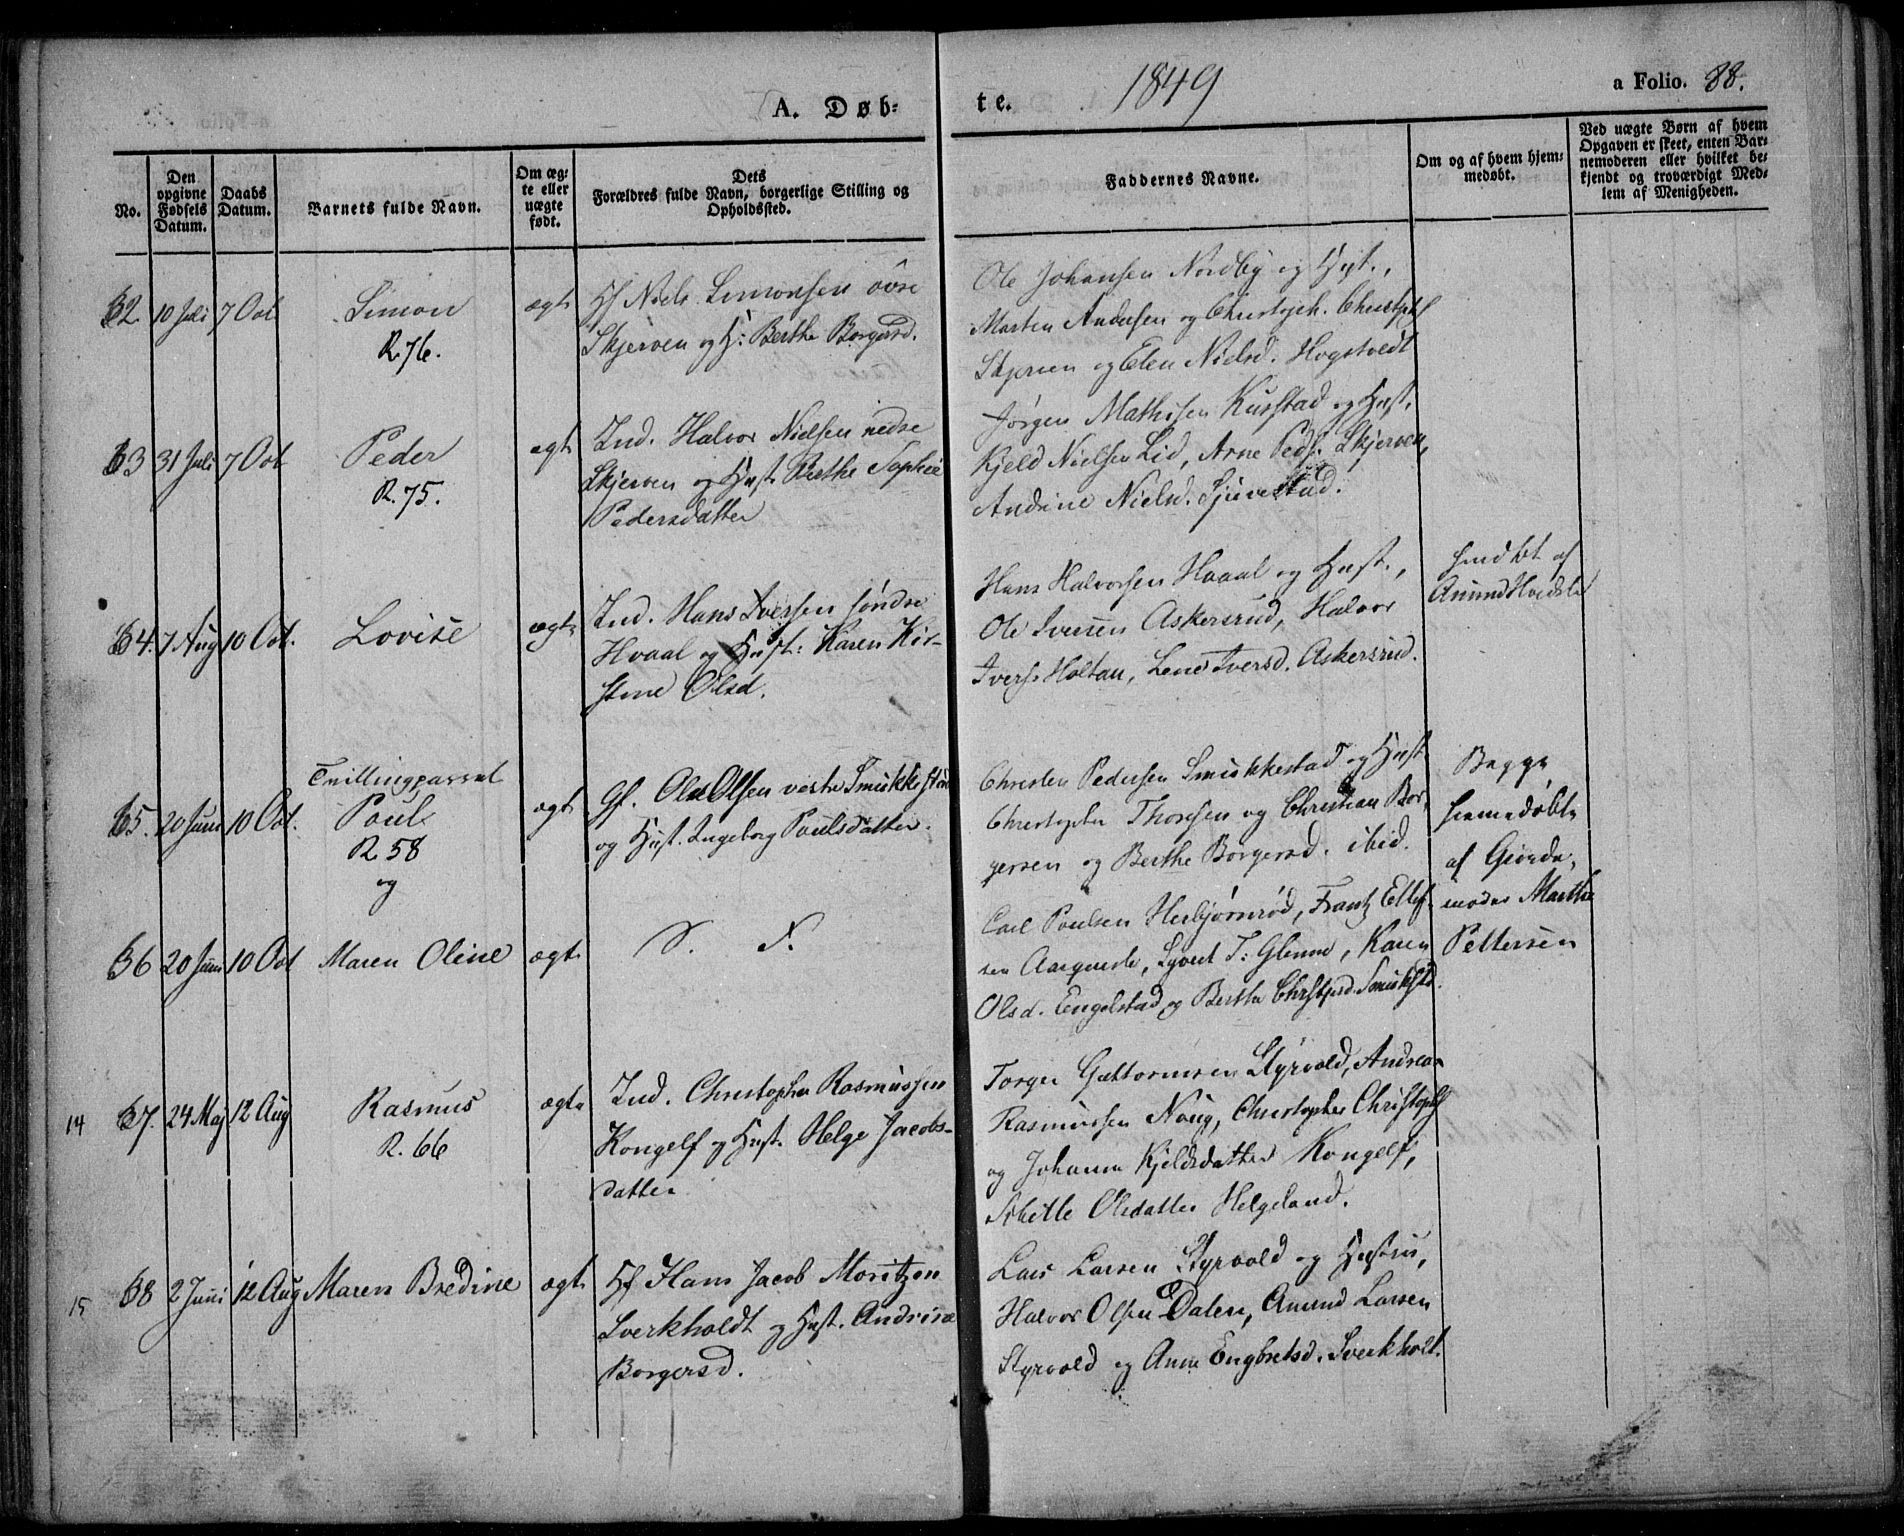 A. Døb-
te.
1849
a Folio. 88.
No.
Den
opgivne
Fødsels
Datum.
Daabs
Datum.
Barnets fulde Navn.
Om æg-
te eller
uægte
født.
Dets
Forældres fulde Navn, borgerlige Stilling og
Opholdssted.
Faddernes Navne.
Om og af hvem hjem-
medøbt.
Ved uægte Børn af hvem
Opgaven er skeet, enten Bar-
nemoderen eller hvilket be-
kjendt og troværdigt Med-
lem af Menigheden.
62 10 Juli 7 Oct Simon ægt
R. 76.
Hf Niels Simonsen øvre
Skjerven og H: Berthe Borgersd.
Ole Johansen Nordby og Hust.,
Marten Andersen og Christoph. Christophs
Skjerven og Elen Nielsd. Hogstvedt
63 31 Juli 7 Oct Peder ægt
R. 75.
Ind. Halvor Nielsen nedre
Skjerven og Hust. Berthe Sophie
Pedersdatter
Jørgen Mathisen Kusstad og Hust,
Kjeld Nielsen Lid, Arne Peds. Skjerven,
Andrine Nielsd. Sjuvestad.
64. 7 Aug 10 Oct. Lovise ægt
Ind. Hans Iversen søndre
Hvaal og Hust: Karen Kir-
stine Olsd.
Hans Halvorsen Hvaal og Hust.,
Ole Iversen Askersrud, Halvor
Ivers. Holtan, Lene Iversd. Askersrud.
af
Amund
65. 20 Juni 10 Oct. Tvillingparret
Poul ægt
R 58
og
Gf. Ole Olsen vestre Smukkestad
og Hust. Ingeborg Poulsdatter.
Christen Pedersen Smukkestad og Hust
Christopher Thorsen og Christian Bor-
gersen og Berthe Borgersd. ibid.
Begge
hjemmedøbte
af Giorde-
moder Marthe
Pettersen
66 20 Juni 10 Oct Maren Oline ægt
S. N.
Carl Poulsen Herbjørnrød, Frantz Ellef-
sen Syvert T: Glenne, Karen
Olsd. Engelstad og Berthe Christphsd. Smukstd.
14 67. 24 Maj 12 Aug Rasmus ægte
R. 66
Ind. Christopher Rasmussen
Kongelf og Hust. Helge Jacobs-
datter
Torger Guttormsen Styrvold, Andreas
Rasmussen Christopher Christophs
og Johanne Kjeldsdatter Kongelf,
Sibille Olsdatter Helgeland.
15 68 2 Juni 12 Aug Maren Bredine ægt
Hf Hans Jacob Moritzen
Sverkholdt og Hust. Andrine
Borgersd.
Lars Larsen Styrvold og Hustru,
Halvor Olsen Dalen, Amund Larsen
Styrvold og Anne Engbretsd. Sverkholt.